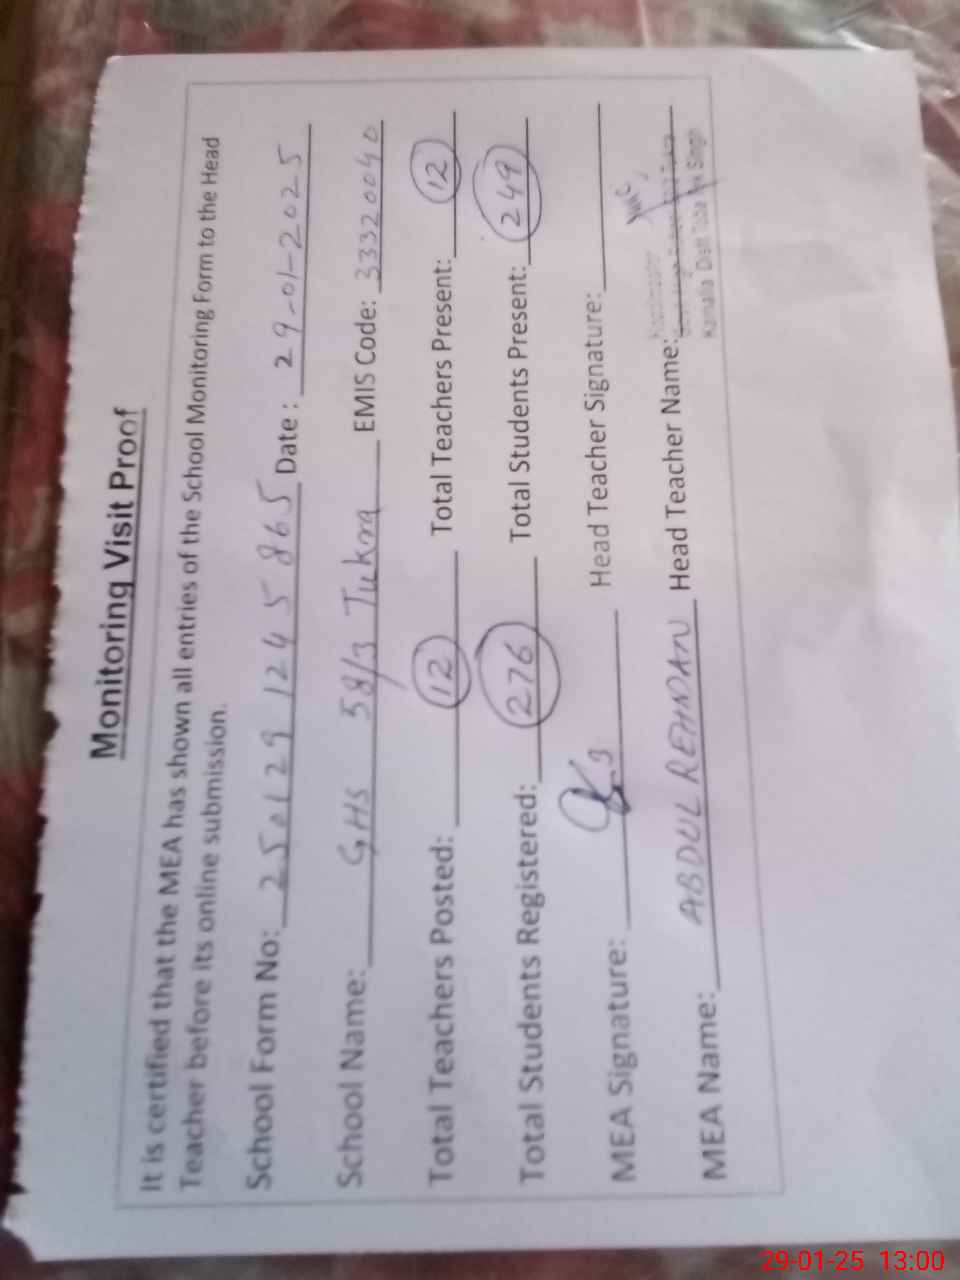 Monitoring Visit Proof
It is certified that the MEA has shown all entries of the School Monitoring Form to the Head
Teacher before its online submission.
School Form No: 250129 1245 865 Date: 29-01-2025
School Name: GHS 58/3 Tukra EMIS Code: 33320040
Total Teachers Posted: 12 Total Teachers Present: 12
Total Students Registered: 276 Total Students Present: 249
MEA Signature: Head Teacher Signature:
MEA Name: ABDUL REHMAN Head Teacher Name:
Headmaster
Kamalia Distt Toba Tek Singh
29-01-25 13:00